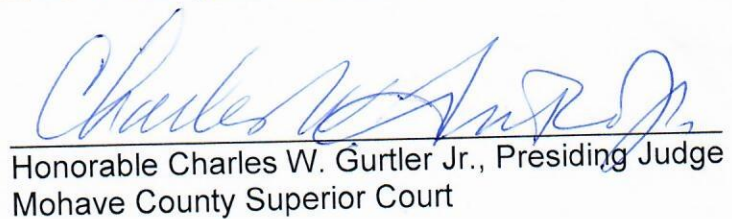 Charles W Gurtler Jr.
Honorable Charles W. Gurtler Jr., Presiding Judge
Mohave County Superior Court